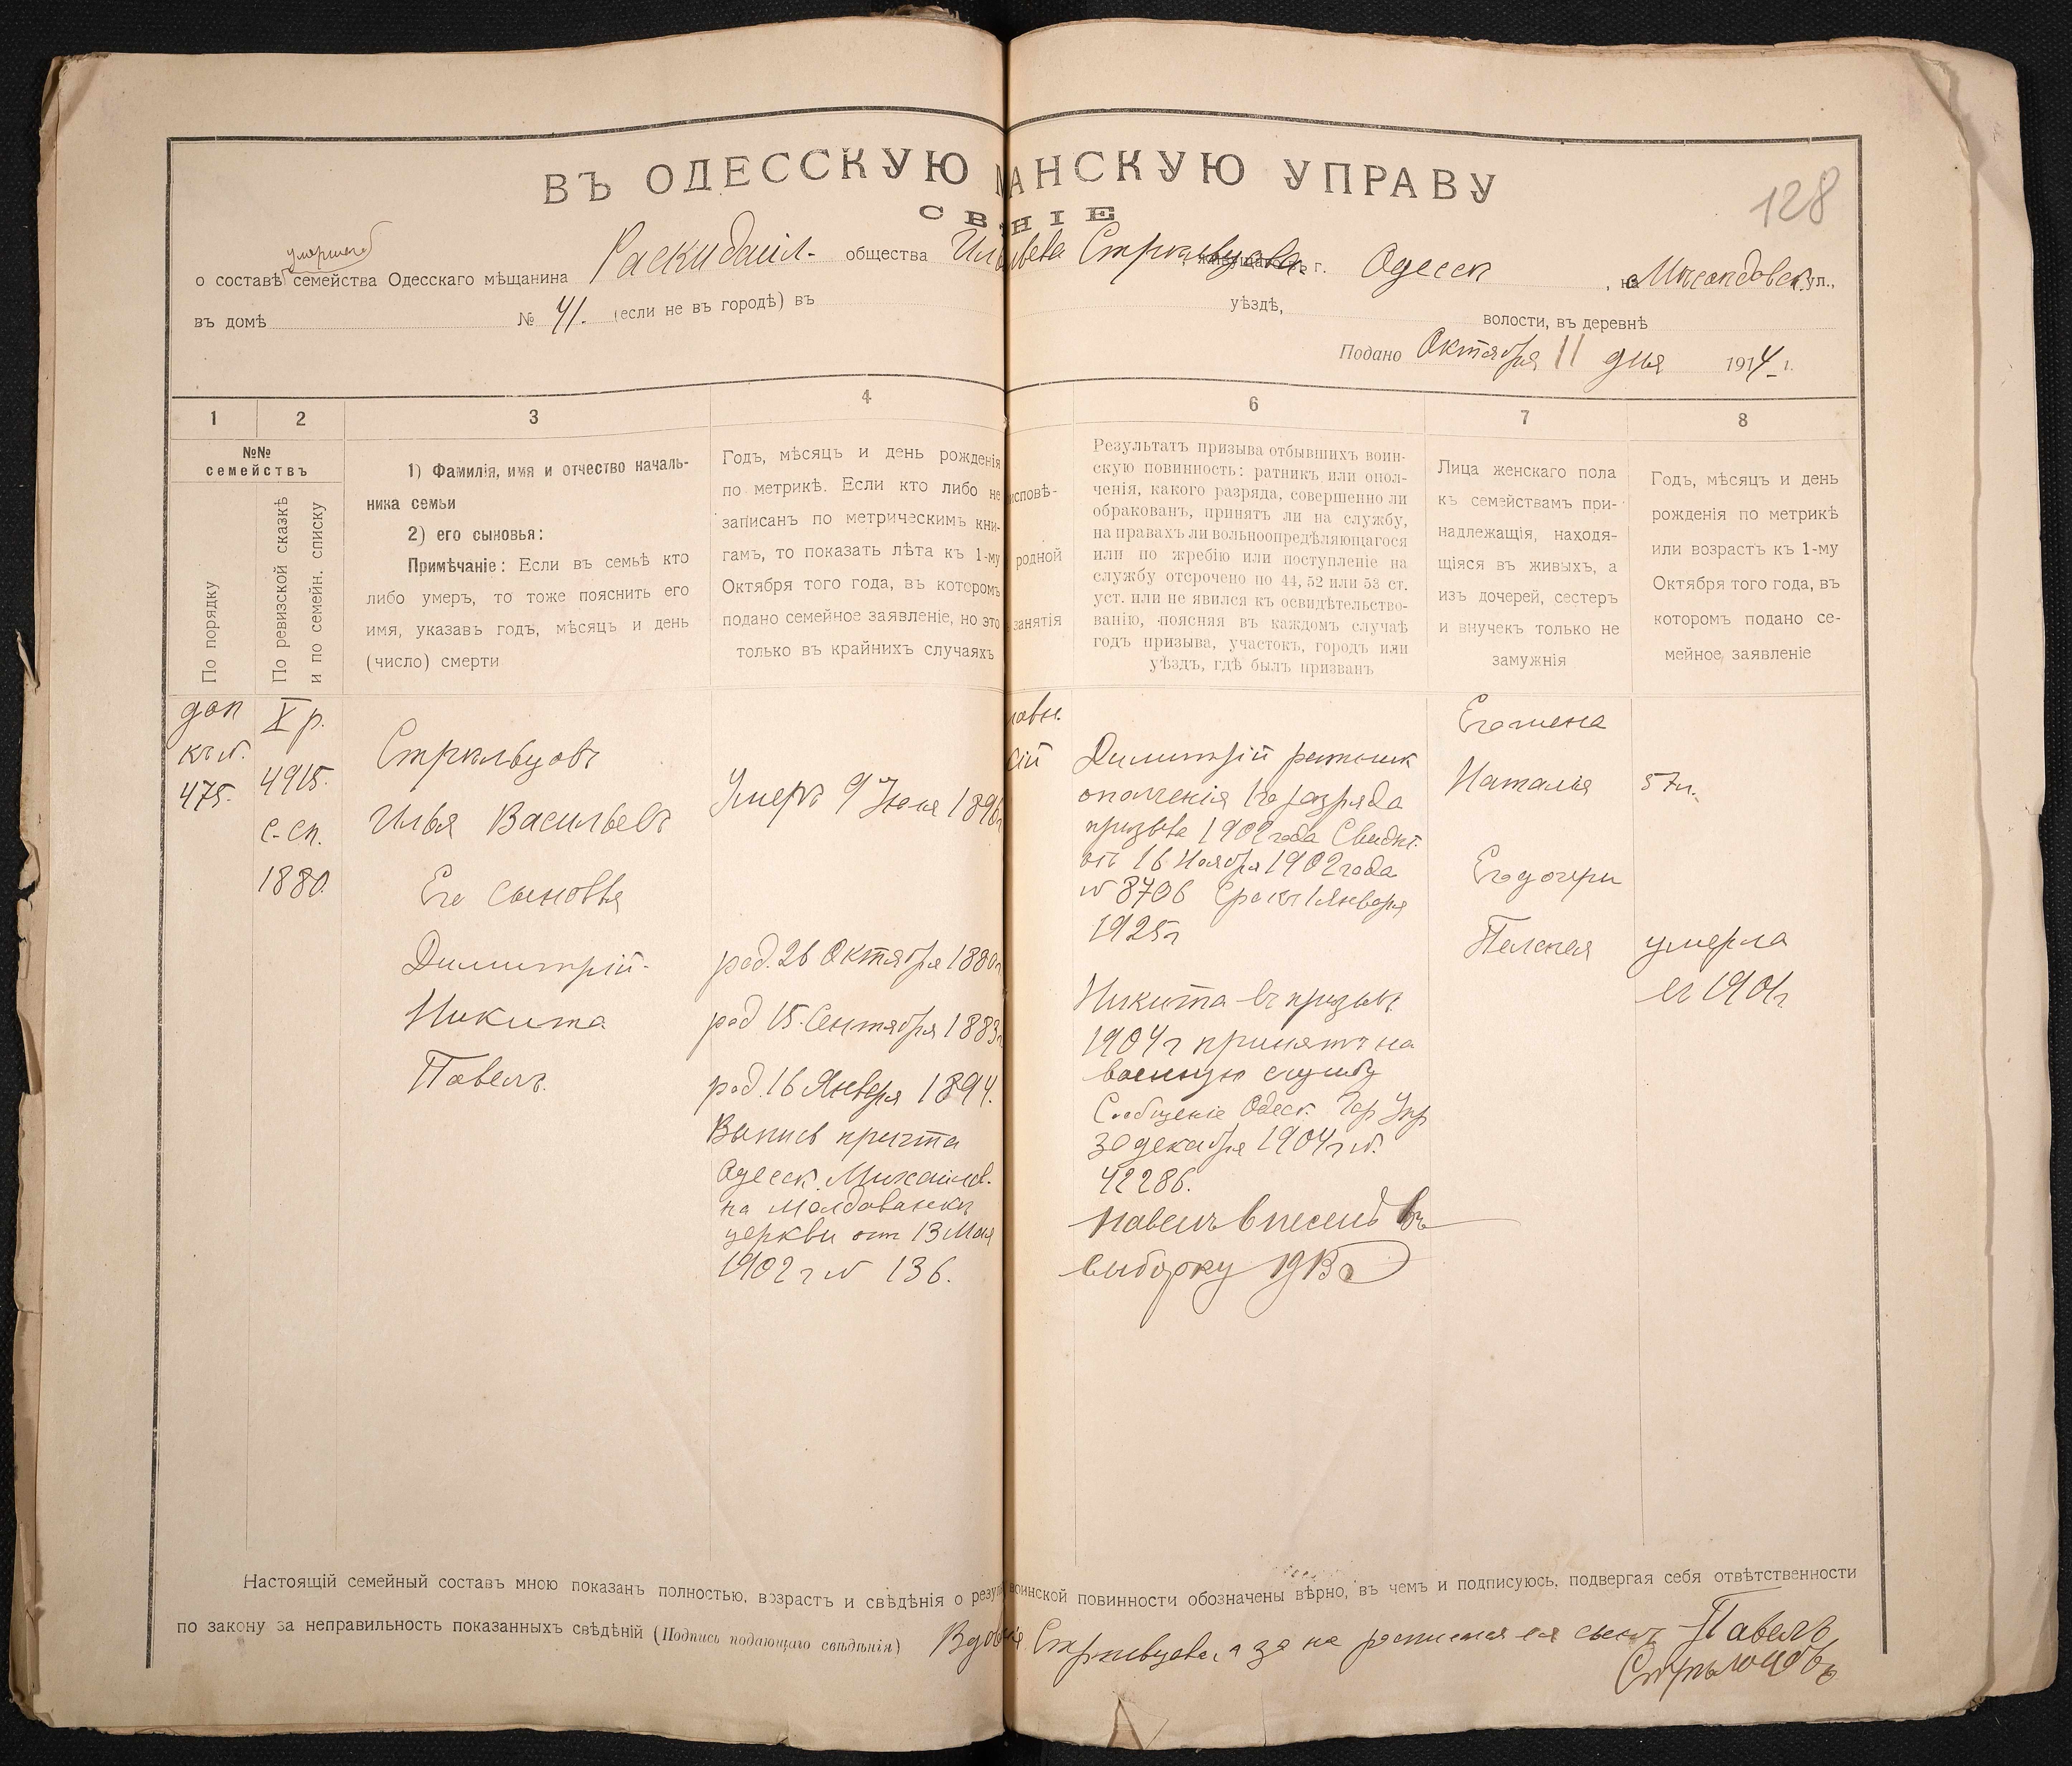 ВЪ ОДЕССКУЮ АНСКУЮ УПРАВУ
128
умершаго
о составѣ семейства Одесскаго мѣщанина Раскидайл. общества Стрѣльцова г. Одесск , на ул.,
въ домѣ № 41. (если не въ городѣ) въ уѣздѣ, волости, въ деревнѣ
Подано Октября 11 дня 1914 г.
1
2
3
4
6
7
8
№№
семействъ
По порядку
По ревизской сказкѣ
и по семейн. списку
1) Фамилія, имя и отчество началь-
ника семьи
2) его сыновья:
Примѣчаніе: Если въ семьѣ кто
либо умеръ, то тоже пояснить его
имя, указавъ годъ, мѣсяцъ и день
(число) смерти
Годъ, мѣсяцъ и день рожденія
по метрикѣ. Если кто либо не
записанъ по метрическимъ кни-
гамъ, то показать лѣта къ 1-му
Октября того года, въ которомъ
подано семейное заявленіе, но это
только въ крайнихъ случаяхъ
исповѣ-
родной
занятія
Результатъ призыва отбывшихъ воин-
скую повинность: ратникъ или опол-
ченія, какого разряда, совершенно ли
обракованъ, принятъ ли на службу,
на правахъ ли вольноопредѣляющагося
или по жребію или поступленіе на
службу отсрочено по 44, 52 или 53 ст.
уст. или не явился къ освидѣтельство-
ванію, поясняя въ каждомъ случаѣ
годъ призыва, участокъ, городъ или
уѣздъ, гдѣ былъ призванъ
Лица женскаго пола
къ семействамъ при-
надлежащія, находя-
щіяся въ живыхъ, а
изъ дочерей, сестеръ
и внучекъ только не
замужнія
Годъ, мѣсяцъ и день
рожденія по метрикѣ
или возрастъ къ 1-му
Октября того года, въ
которомъ подано се-
мейное заявленіе
доп
къ №
475.
X р.
4915.
с-сп.
1880.
Стрѣльцовъ
Илья Васильевъ
Его сыновья
Димитрій.
Никита
Павелъ.
Умеръ 9 1896г
род. 26 Октября 1880г
род 15 Сентября 1883г
род. 16 Января 1894.
Выпись причта
Одесск. Михаил.
на Молдаванкѣ
церкви от 13 Мая
1902 г № 136.
Димитрій ратник
ополченія 1го разряда
призыва 1902 года Свидѣт.
отъ 16 Ноября 1902 года
№ 8706 Срокъ 1 Января
1925г
Никита въ призывъ
1904г принятъ на
военную службу
Сообщеніе Одеск. Гор Упр
30 декабря 1904г №
42286.
Павелъ внесенъ въ
выборку 1913 г
Его жена
Наталья
Его дочери
57л.
умерла
въ 1901г
Настоящій семейный составъ мною показанъ полностью, возрастъ и свѣдѣнія о резул воинской повинности обозначены вѣрно, въ чемъ и подписуюсь, подвергая себя отвѣтственности
по закону за неправильность показанныхъ свѣдѣній (Подпись подающаго свѣдѣнія) Стрѣльцова, а за нее росписался ея сынъ Павелъ
Стрѣльцовъ